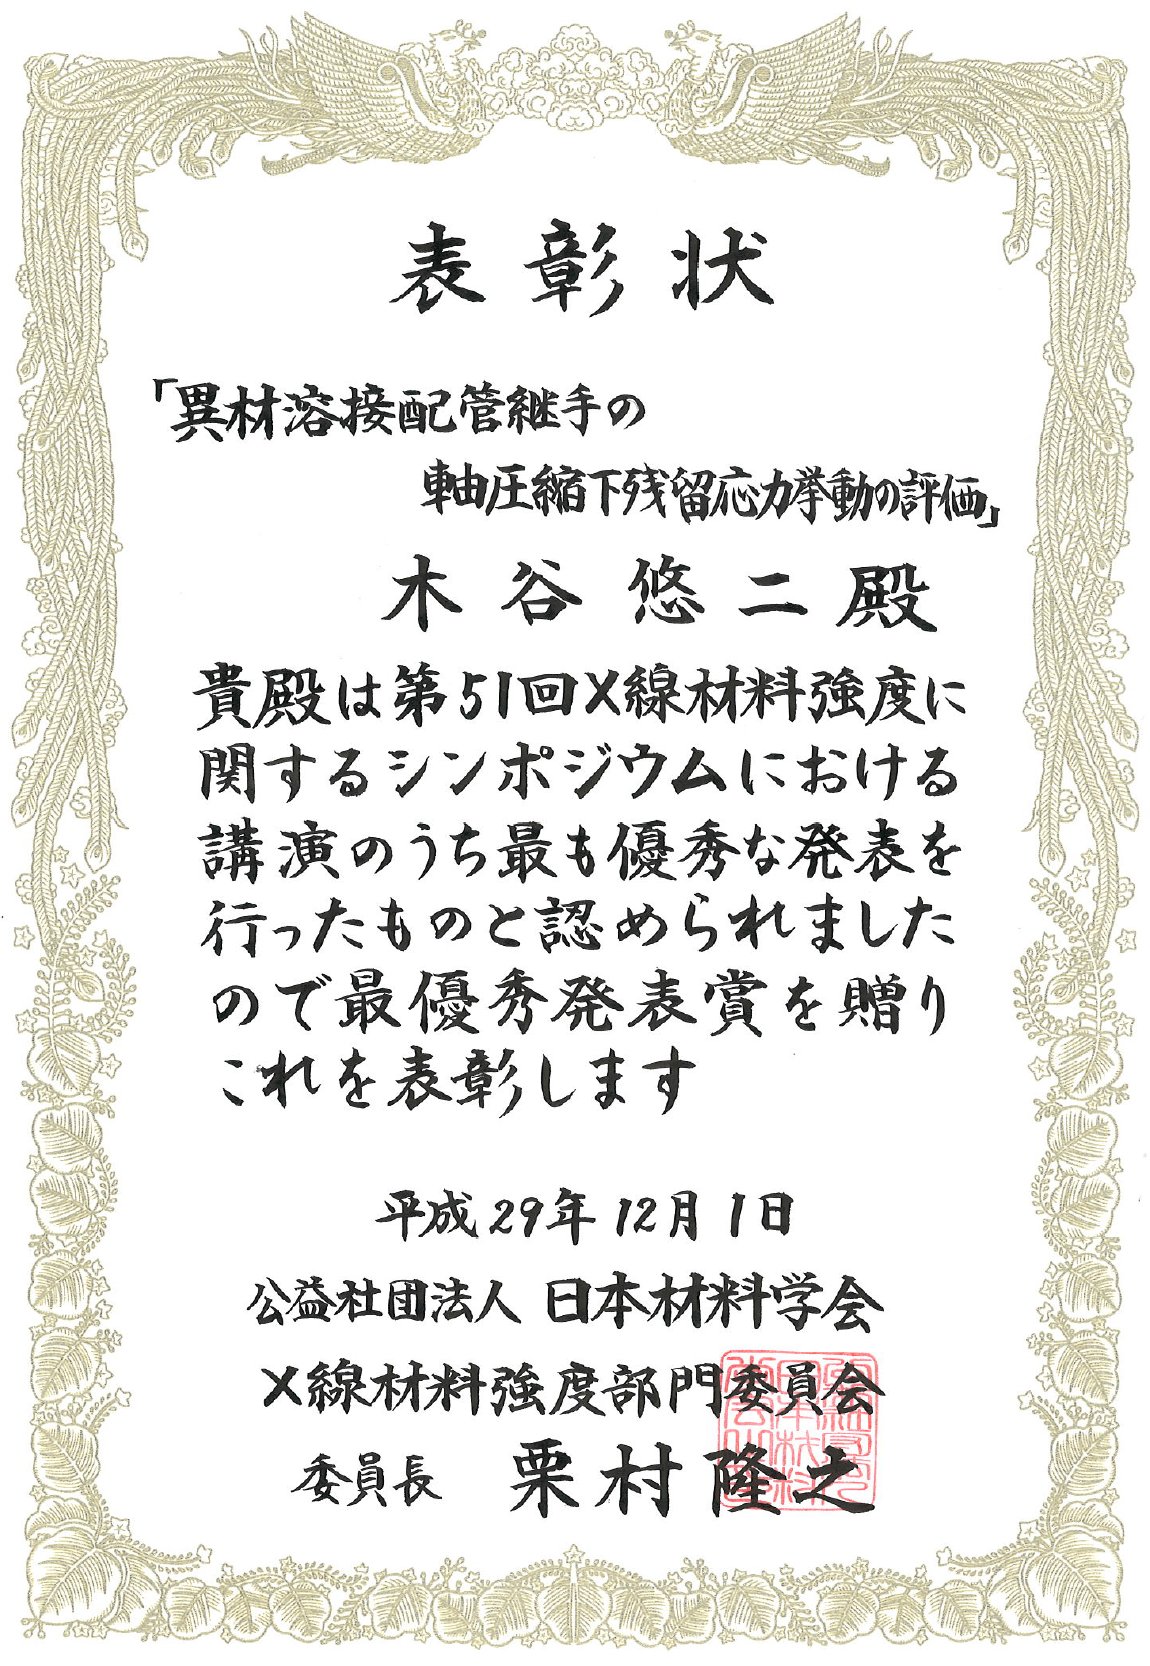 表彰状
「異材溶接配管継手の
軸圧縮下残留応力挙動の評価」
木谷悠二殿
貴殿は第51回X線材料強度に
関するシンポジウムにおける
講演のうち最も優秀な発表を
行ったものと認められました
ので最優秀発表賞を贈り
これを表彰します
平成29年12月1日
公益社団法人 日本材料学会
X線材料強度部門委員会
委員長 栗村隆之